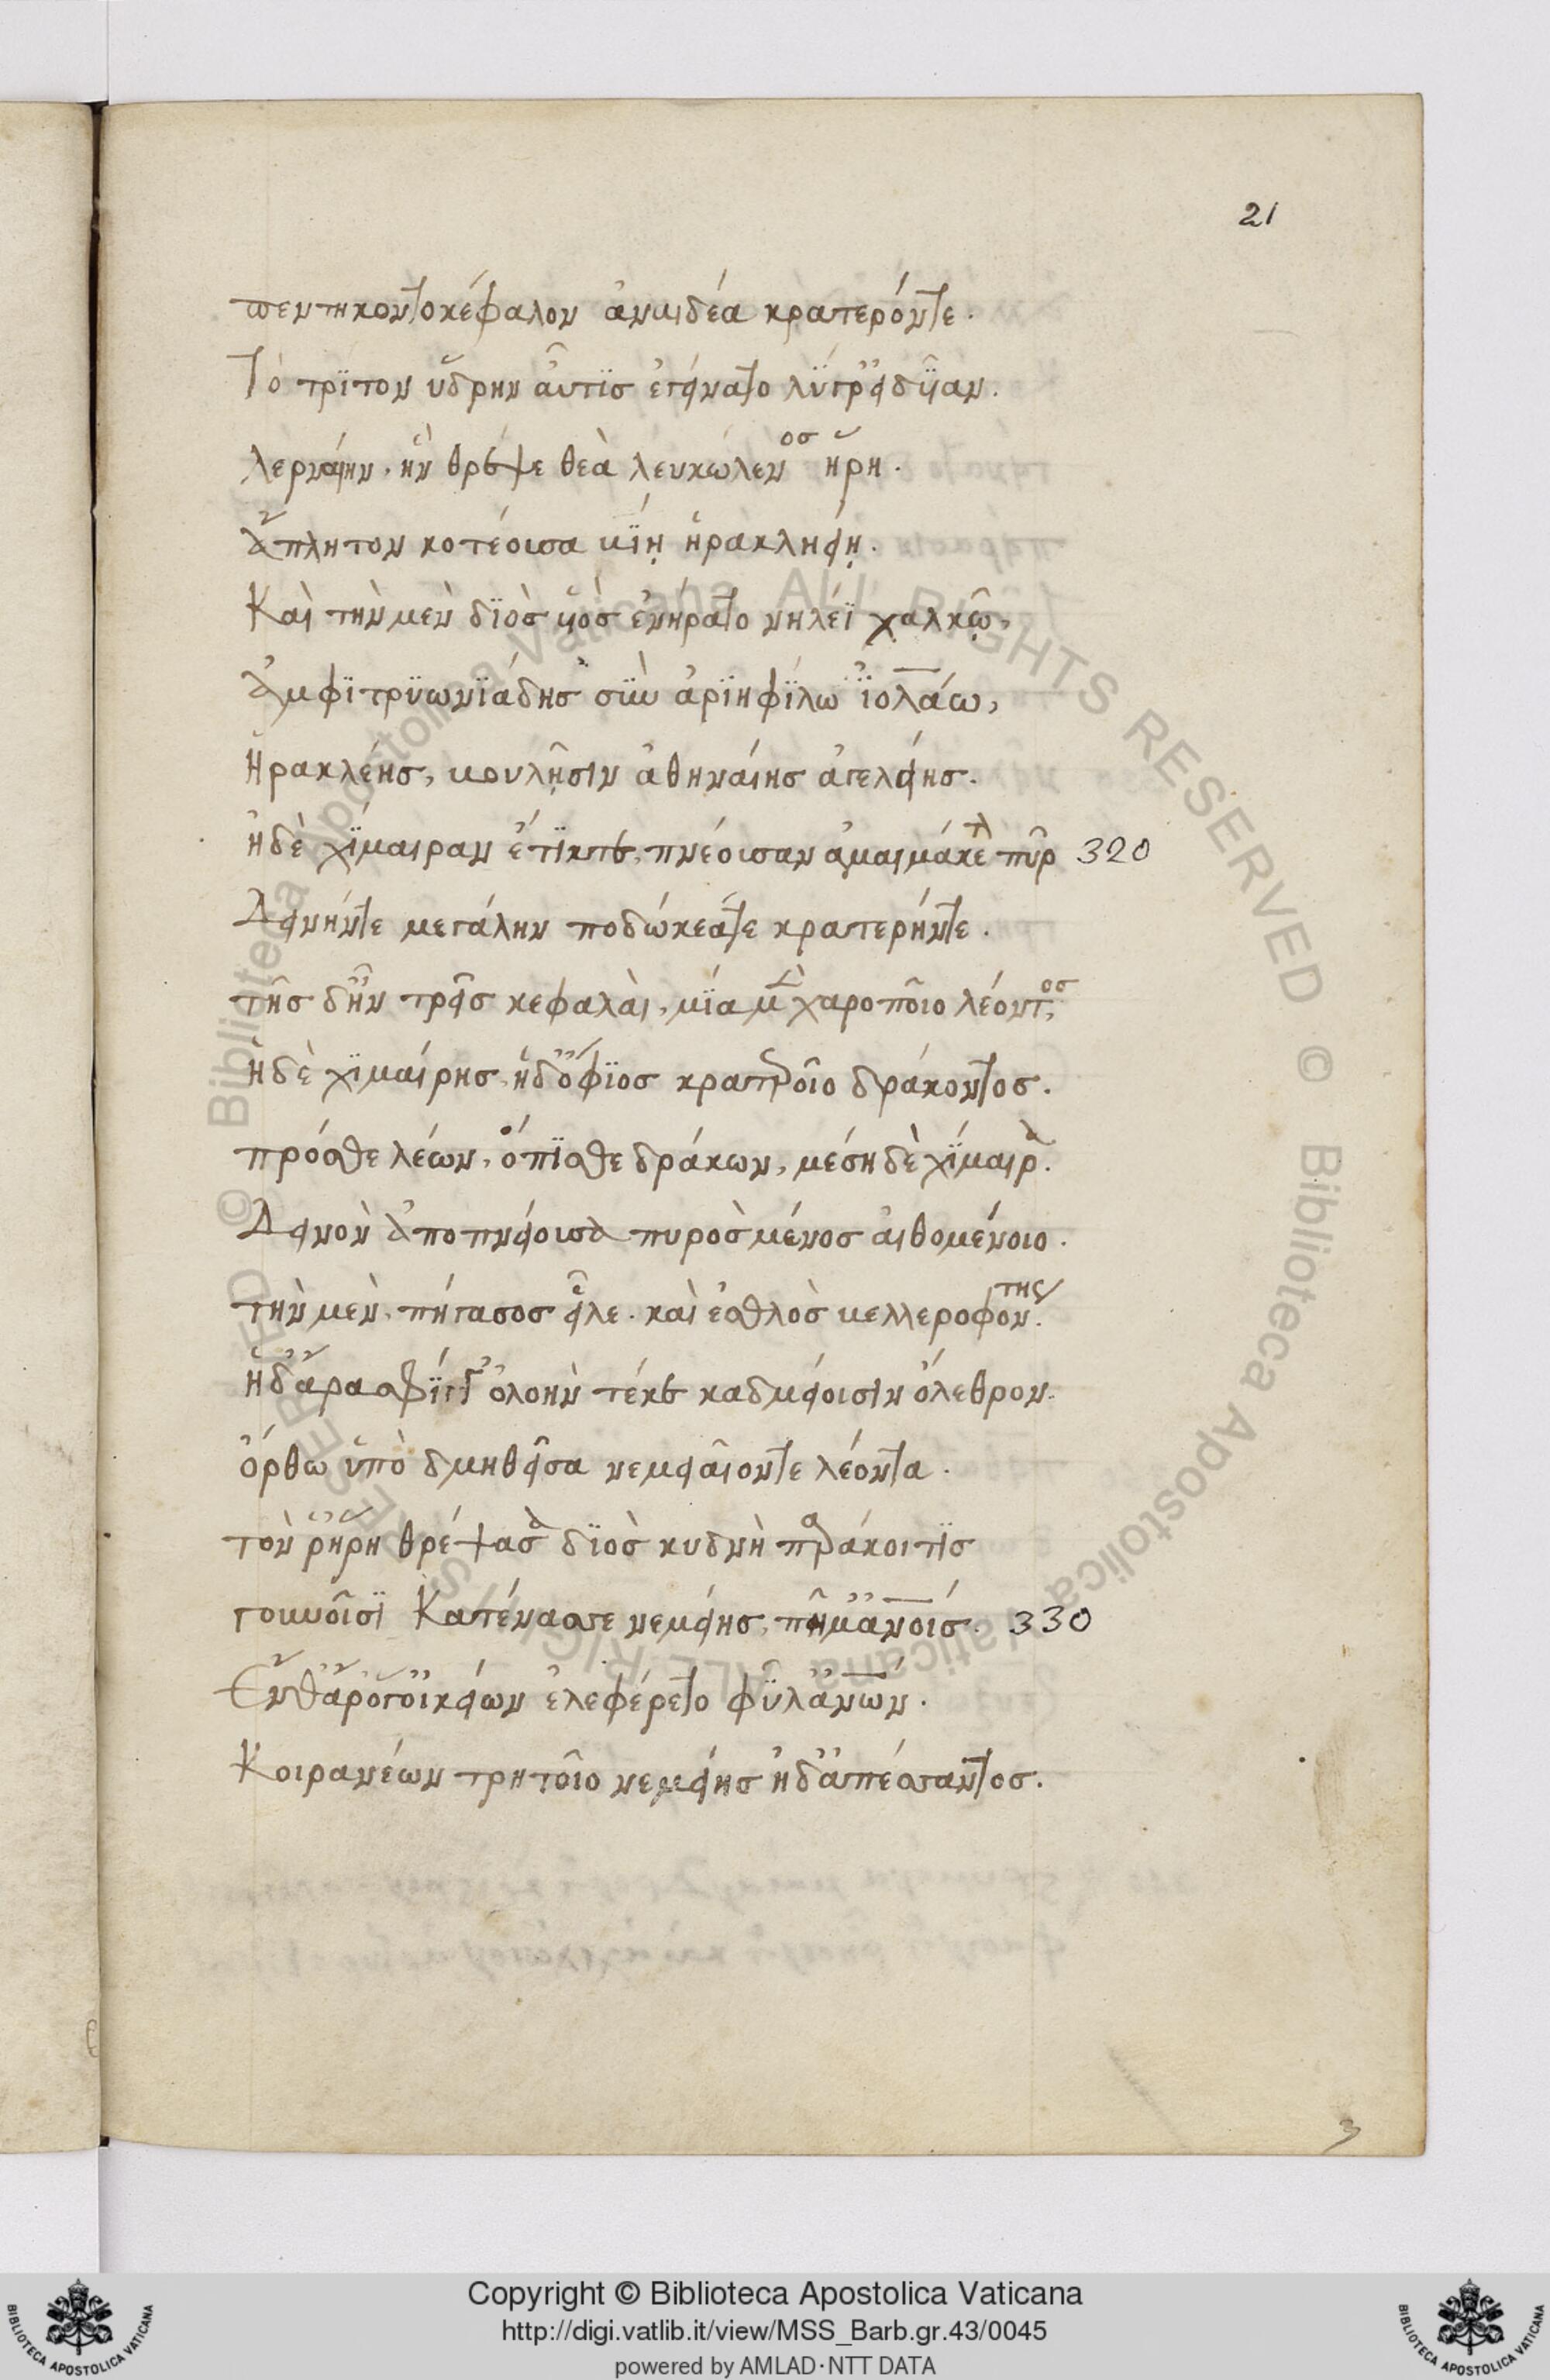 21
πεντηκοντοκέφαλον ἀναιδέα κρατερόντε.
Τὸ τρίτον ὕδρην αὖτις ἐγείνατο λύγρ' εἰδυῖαν.
λερναίην, ἣν θρέψε θεὰ λευκώλενος ἥρη.
ἄπλητον κοτέουσα βίῃ ἡρακληείῃ.
Καὶ τὴν μὲν διὸς υἱὸς ἐνήρατο νηλέϊ χαλκῷ,
ἀμφιτρυωνιάδης σὺν ἀρηιφίλω ἰολάω,
ἡρακλέης, βουλῇσιν ἀθηναίης ἀγελείης.
ἡδὲ χίμαιραν ἔτικτε, πνέουσαν ἀμαιμάκετον πῦρ 320
Δεινήντε μεγάλην ποδώκεάτε κρατερήντε.
τῆς δ' ἦν τρεῖς κεφαλαὶ, μία μὲν χαροποῖο λέοντος,
ἡδὲ χιμαίρης, ἡδ' ὄφιος κρατεροῖο δράκοντος.
πρόσθε λέων, ὄπισθε δράκων, μέση δὲ χίμαιρα.
Δεινὸν ἀποπνείουσα πυρὸς μένος αἰθομένοιο.
τὴν μὲν, πήγασος εἷλε. καὶ ἐσθλὸς βελλεροφόντης.
ἡδ' ἄρα σφίγγ' ὀλοὴν τέκε καδμείοισιν ὄλεθρον.
ὄρθω ὑπὸ δμηθεῖσα νεμειαῖοντε λέοντα.
τὸν ῥ' ἥρη θρέψασα διὸς κυδνὴ παράκοιτις
γουνοῖσι Κατένασσε νεμείης, πῆμ' ἀνοις. 330
Ἔνθ' ἄρ' ὅγ' οἰκείων ἐλεφέρετο φῦλ' ἀνων.
Κοιρανέων τρητοῖο νεμείης ἠδ' ἀπέσαντος.
3
Copyright © Biblioteca Apostolica Vaticana
http://digi.vatlib.it/view/MSS_Barb.gr.43/0045
powered by AMLAD·NTT DATA